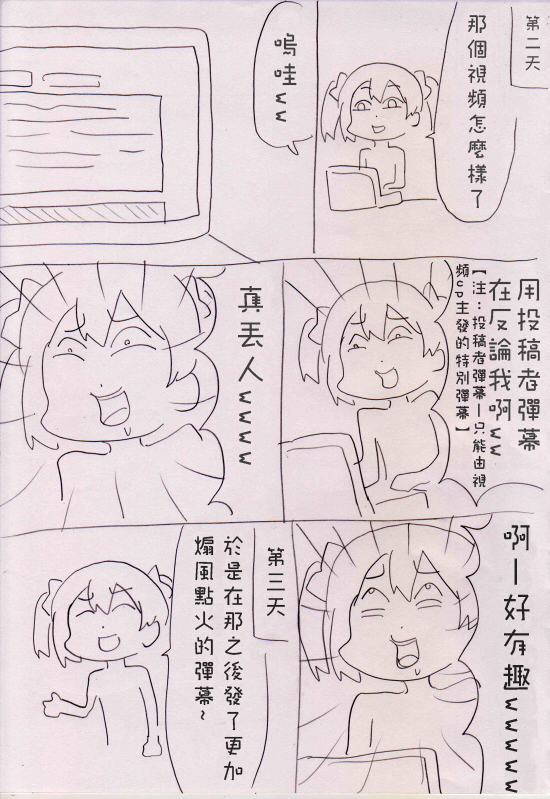 第二天
那個視頻怎麼樣了
嗚哇ww
用投稿者彈幕
在反論我啊ww
【注：投稿者彈幕ー只能由視
頻up主發的特別彈幕】
真丟人wwww
啊ー好有趣wwwww
第三天
於是在那之後發了更加
煽風點火的彈幕~